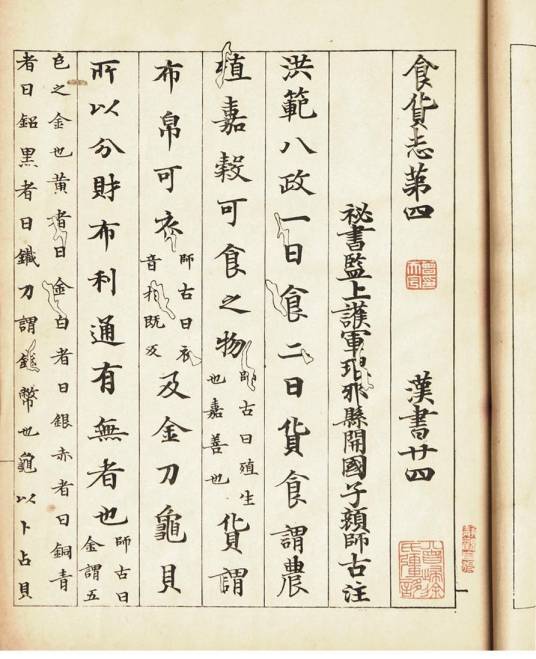 食貨志第四 漢書廿四
祕書監上護軍琅邪縣開國子顔師古注
洪範八政一曰食二曰貨食謂農
殖嘉穀可食之物師古曰殖生也嘉善也貨謂
布帛可衣師古曰衣音於既反及金刀龜貝
所以分財布利通有無者也師古曰金謂五
色之金也黃者曰金白者曰銀赤者曰銅青
者曰鈆黑者曰鐵刀謂錢幣也龜以卜占貝